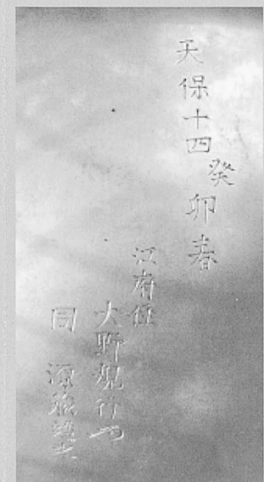 天保十四癸卯春
江府住
大野規行
同